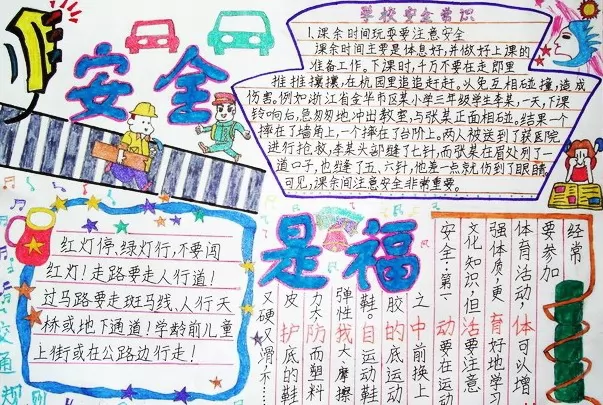 安全
是福
学校安全常识
1.课余时间玩耍要注意安全
课余时间主要是休息好,并做好上课的
准备工作。下课时,千万不要在走郎里
推推攘攘,在校园里追追赶赶。以免互相碰撞,造成
伤害。例如浙江省金华市区某小学三年级学生李某,一天,下课
铃响后,急匆匆地冲出教室,与张某正面相碰。结果一个
摔在了墙角上,一个摔在了台阶上。两人被送到了获医院
进行抢救,李某头部缝了七针,而张某在眉处列了一
道口子,也缝了五、六针,他差一点就伤到了眼睛,
可见,课余间注意安全非常重要。
红灯停、绿灯行,不要闯
红灯!走路要走人行道!
过马路要走斑马线、人行天
桥或地下通道!学龄前儿童
上街或在公路边行走!
交通规则
经常
要参加
体育活动,体可以增
强体质,更育好地学习
文化知识,但活要注意
安全:第一动要在运动
之中前换上
胶的底运动
鞋。自运动鞋
弹性我大、摩擦
力大防而塑料
皮护底的鞋
又硬又滑,不……